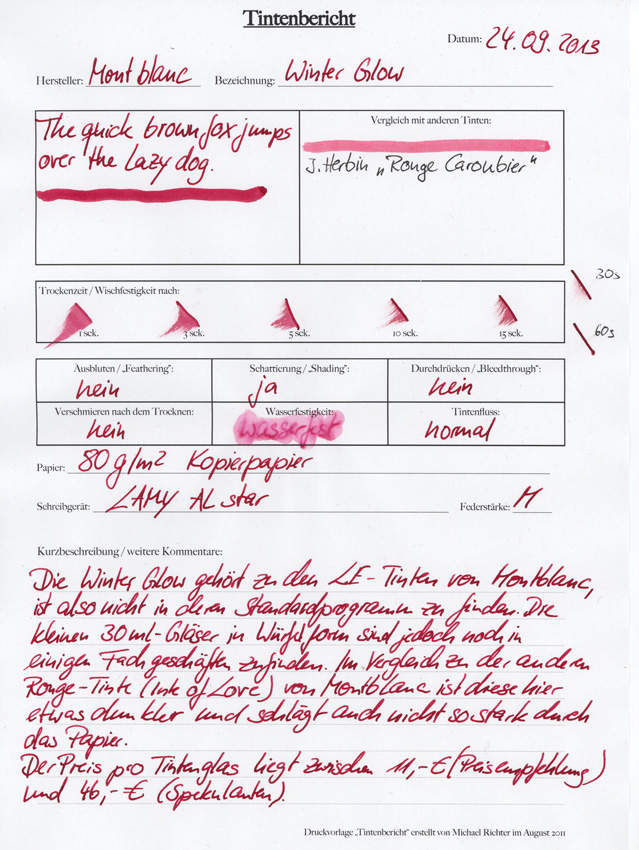 Tintenbericht
Datum: 24.09.2013
Hersteller: Montblanc Bezeichnung: Winter Glow
The quick brown fox jumps
over the lazy dog.
Vergleich mit anderen Tinten:
J. Herbin „Rouge Caroubier“
Trockenzeit / Wischfestigkeit nach:
1 sek. 3 sek. 5 sek. 10 sek. 15 sek.
30s
60s
Ausbluten / „Feathering“: Schattierung / „Shading“: Durchdrücken / „Bleedthrough“:
nein ja nein
Verschmieren nach dem Trocknen: Wasserfestigkeit: Tintenfluss:
nein wasserfest normal
Papier: 80 g/m2 Kopierpapier
Schreibgerät: LAMY AL star Federstärke: M
Kurzbeschreibung / weitere Kommentare:
Die Winter Glow gehört zu den LE-Tinten von Montblanc,
ist also nicht in deren Standardprogramm zu finden. Die
kleinen 30ml-Gläser in Würfelform sind jedoch noch in
einigen Fachgeschäften zu finden. Im Vergleich zu der anderen
Rouge-Tinte (Ink of Love) von Montblanc ist diese hier
etwas dunkler und schlägt auch nicht so stark durch
das Papier.
Der Preis pro Tintenglas liegt zwischen 11,-€ (Preisempfehlung)
und 46,-€ (Spekulanten).
Druckvorlage „Tintenbericht“ erstellt von Michael Richter im August 2011